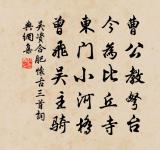 曹公教弩台
今為比丘寺
東門小河橋
曾飛吳主騎
吳資合肥懷古三首詞
典網集